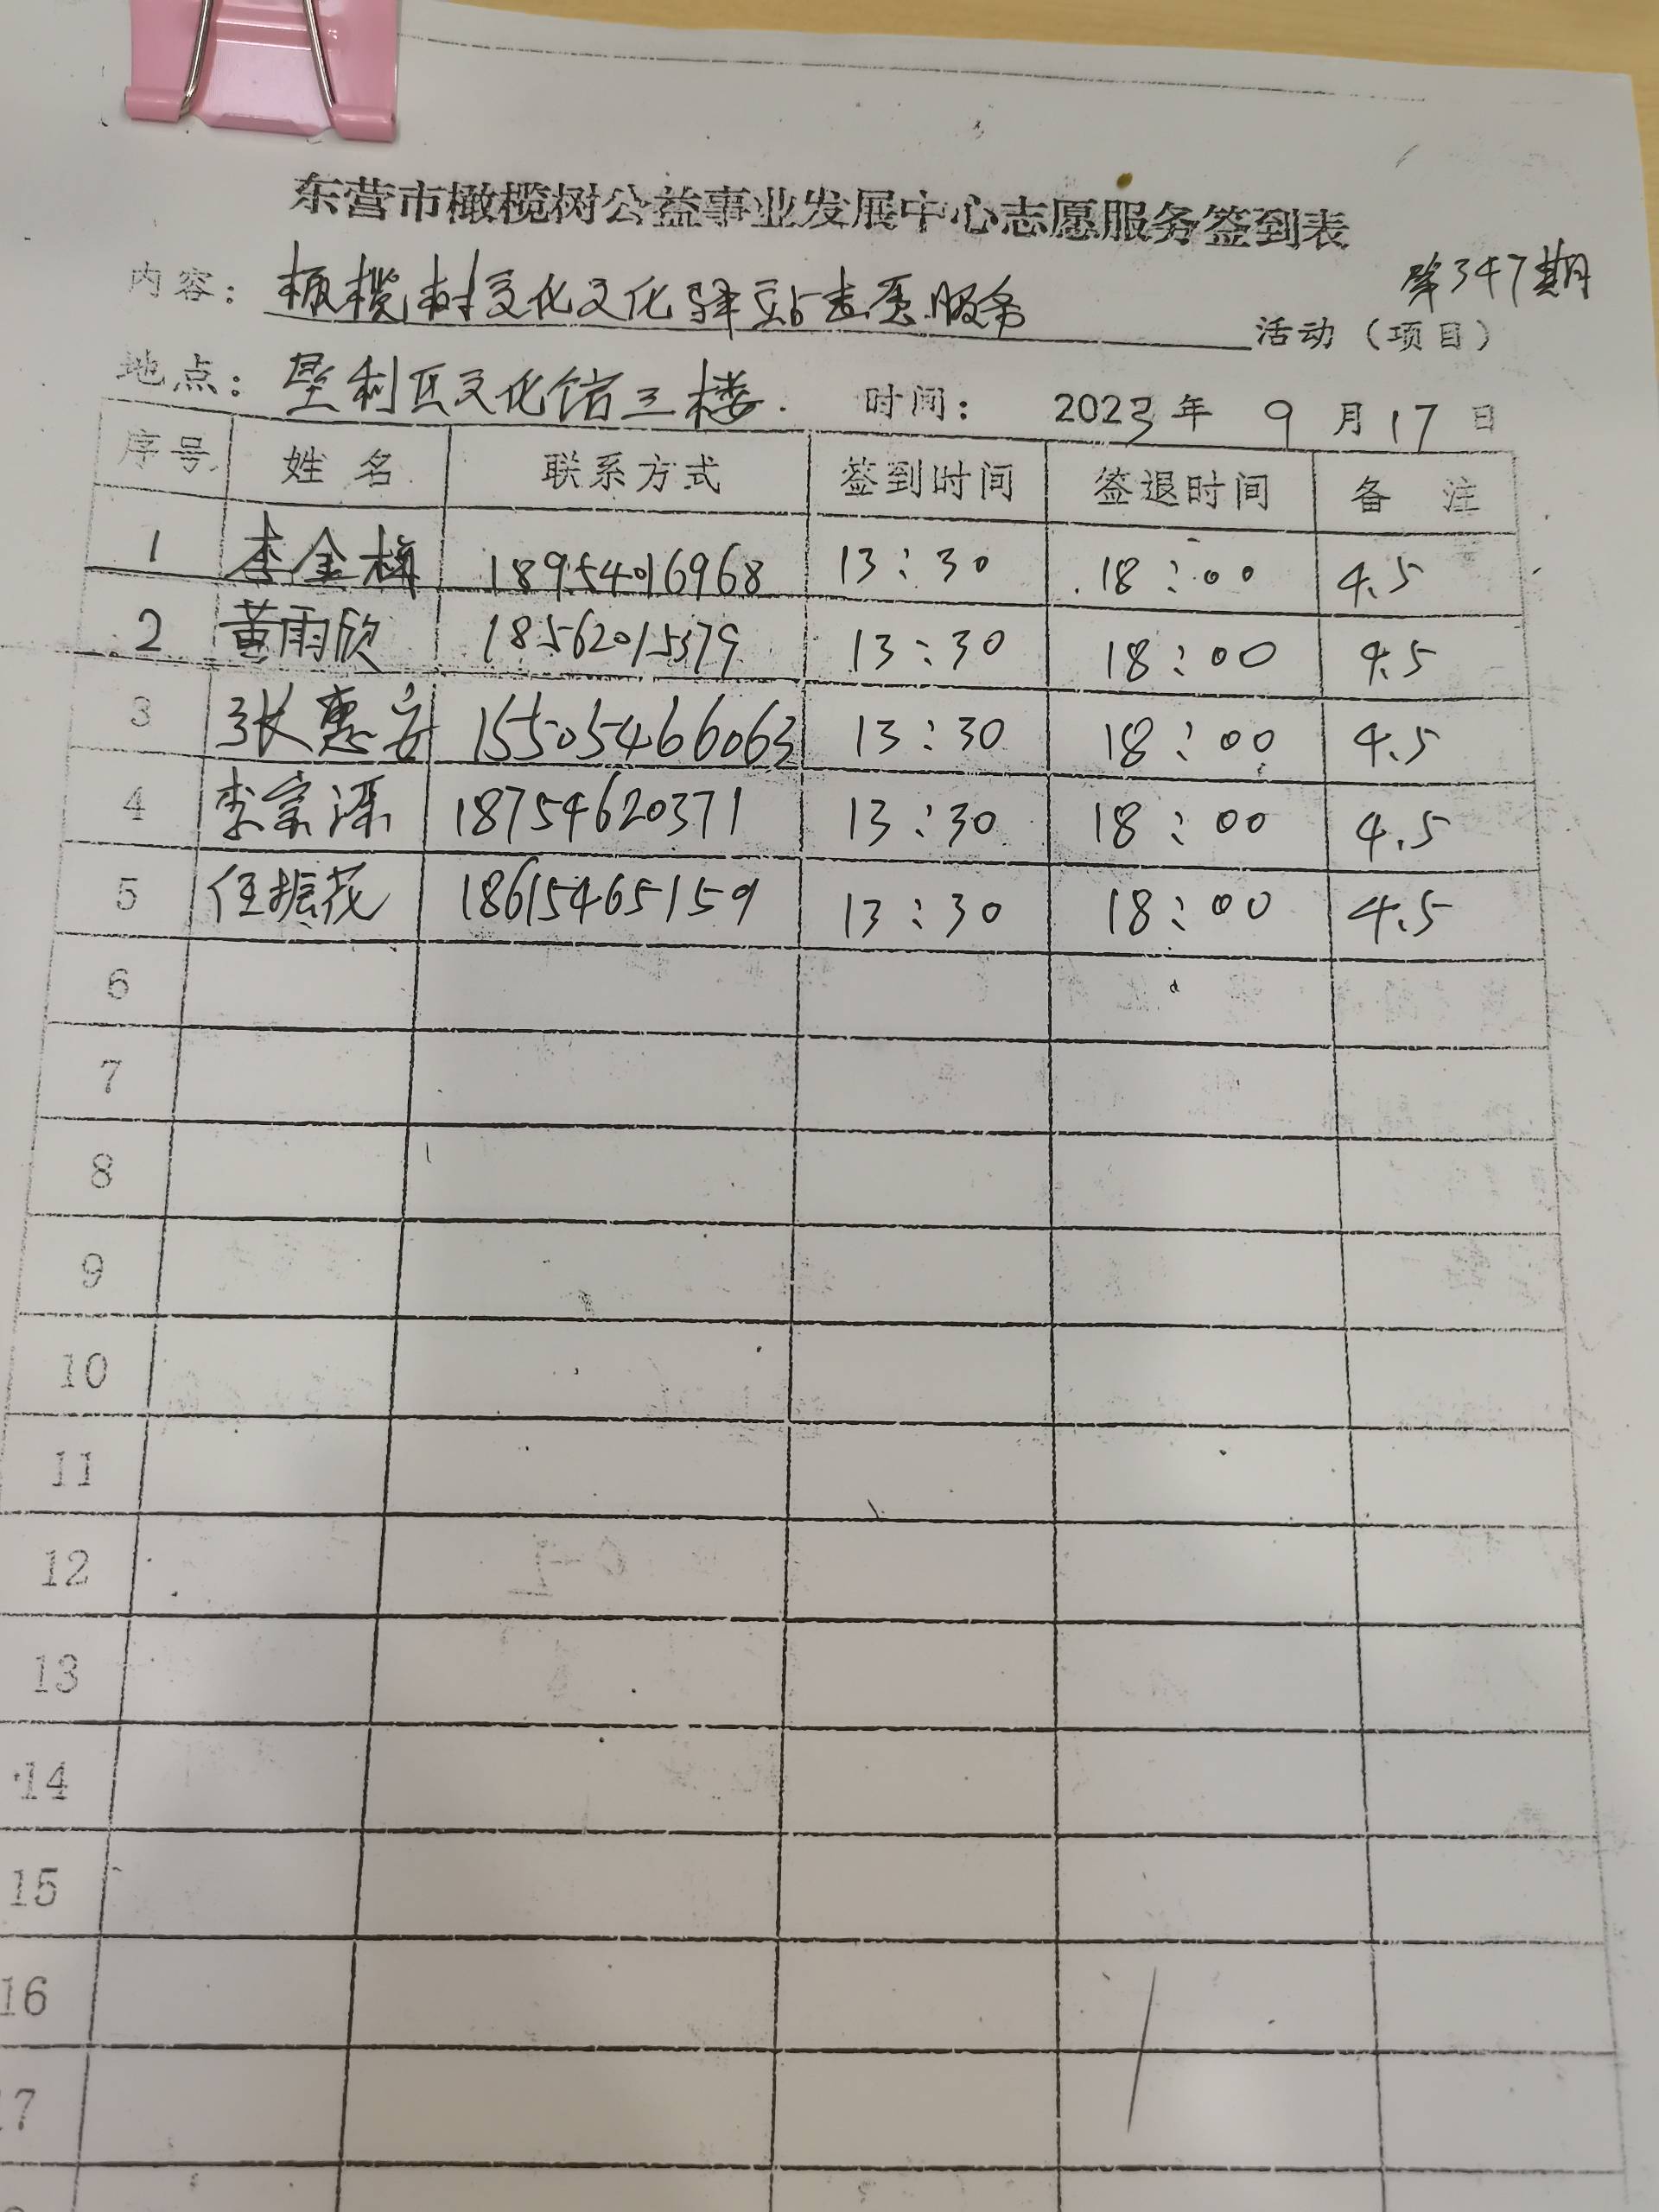 东营市橄榄树公益事业发展中心志愿服务签到表
第347期
内容：橄榄树文化文化驿站志愿服务 活动（项目）
地点：垦利区文化馆三楼. 时间： 2023年 9月17日
序号 姓名 联系方式 签到时间 签退时间 备注
1 李金梅 18954016968 13:30 18:00 4.5
2 黄雨欣 18562015379 13:30 18:00 4.5
3 张惠安 15505466063 13:30 18:00 4.5
4 李宗深 18754620371 13:30 18:00 4.5
5 任振花 18615465159 13:30 18:00 4.5
6
7
8
9
10
11
12
13
14
15
16
17